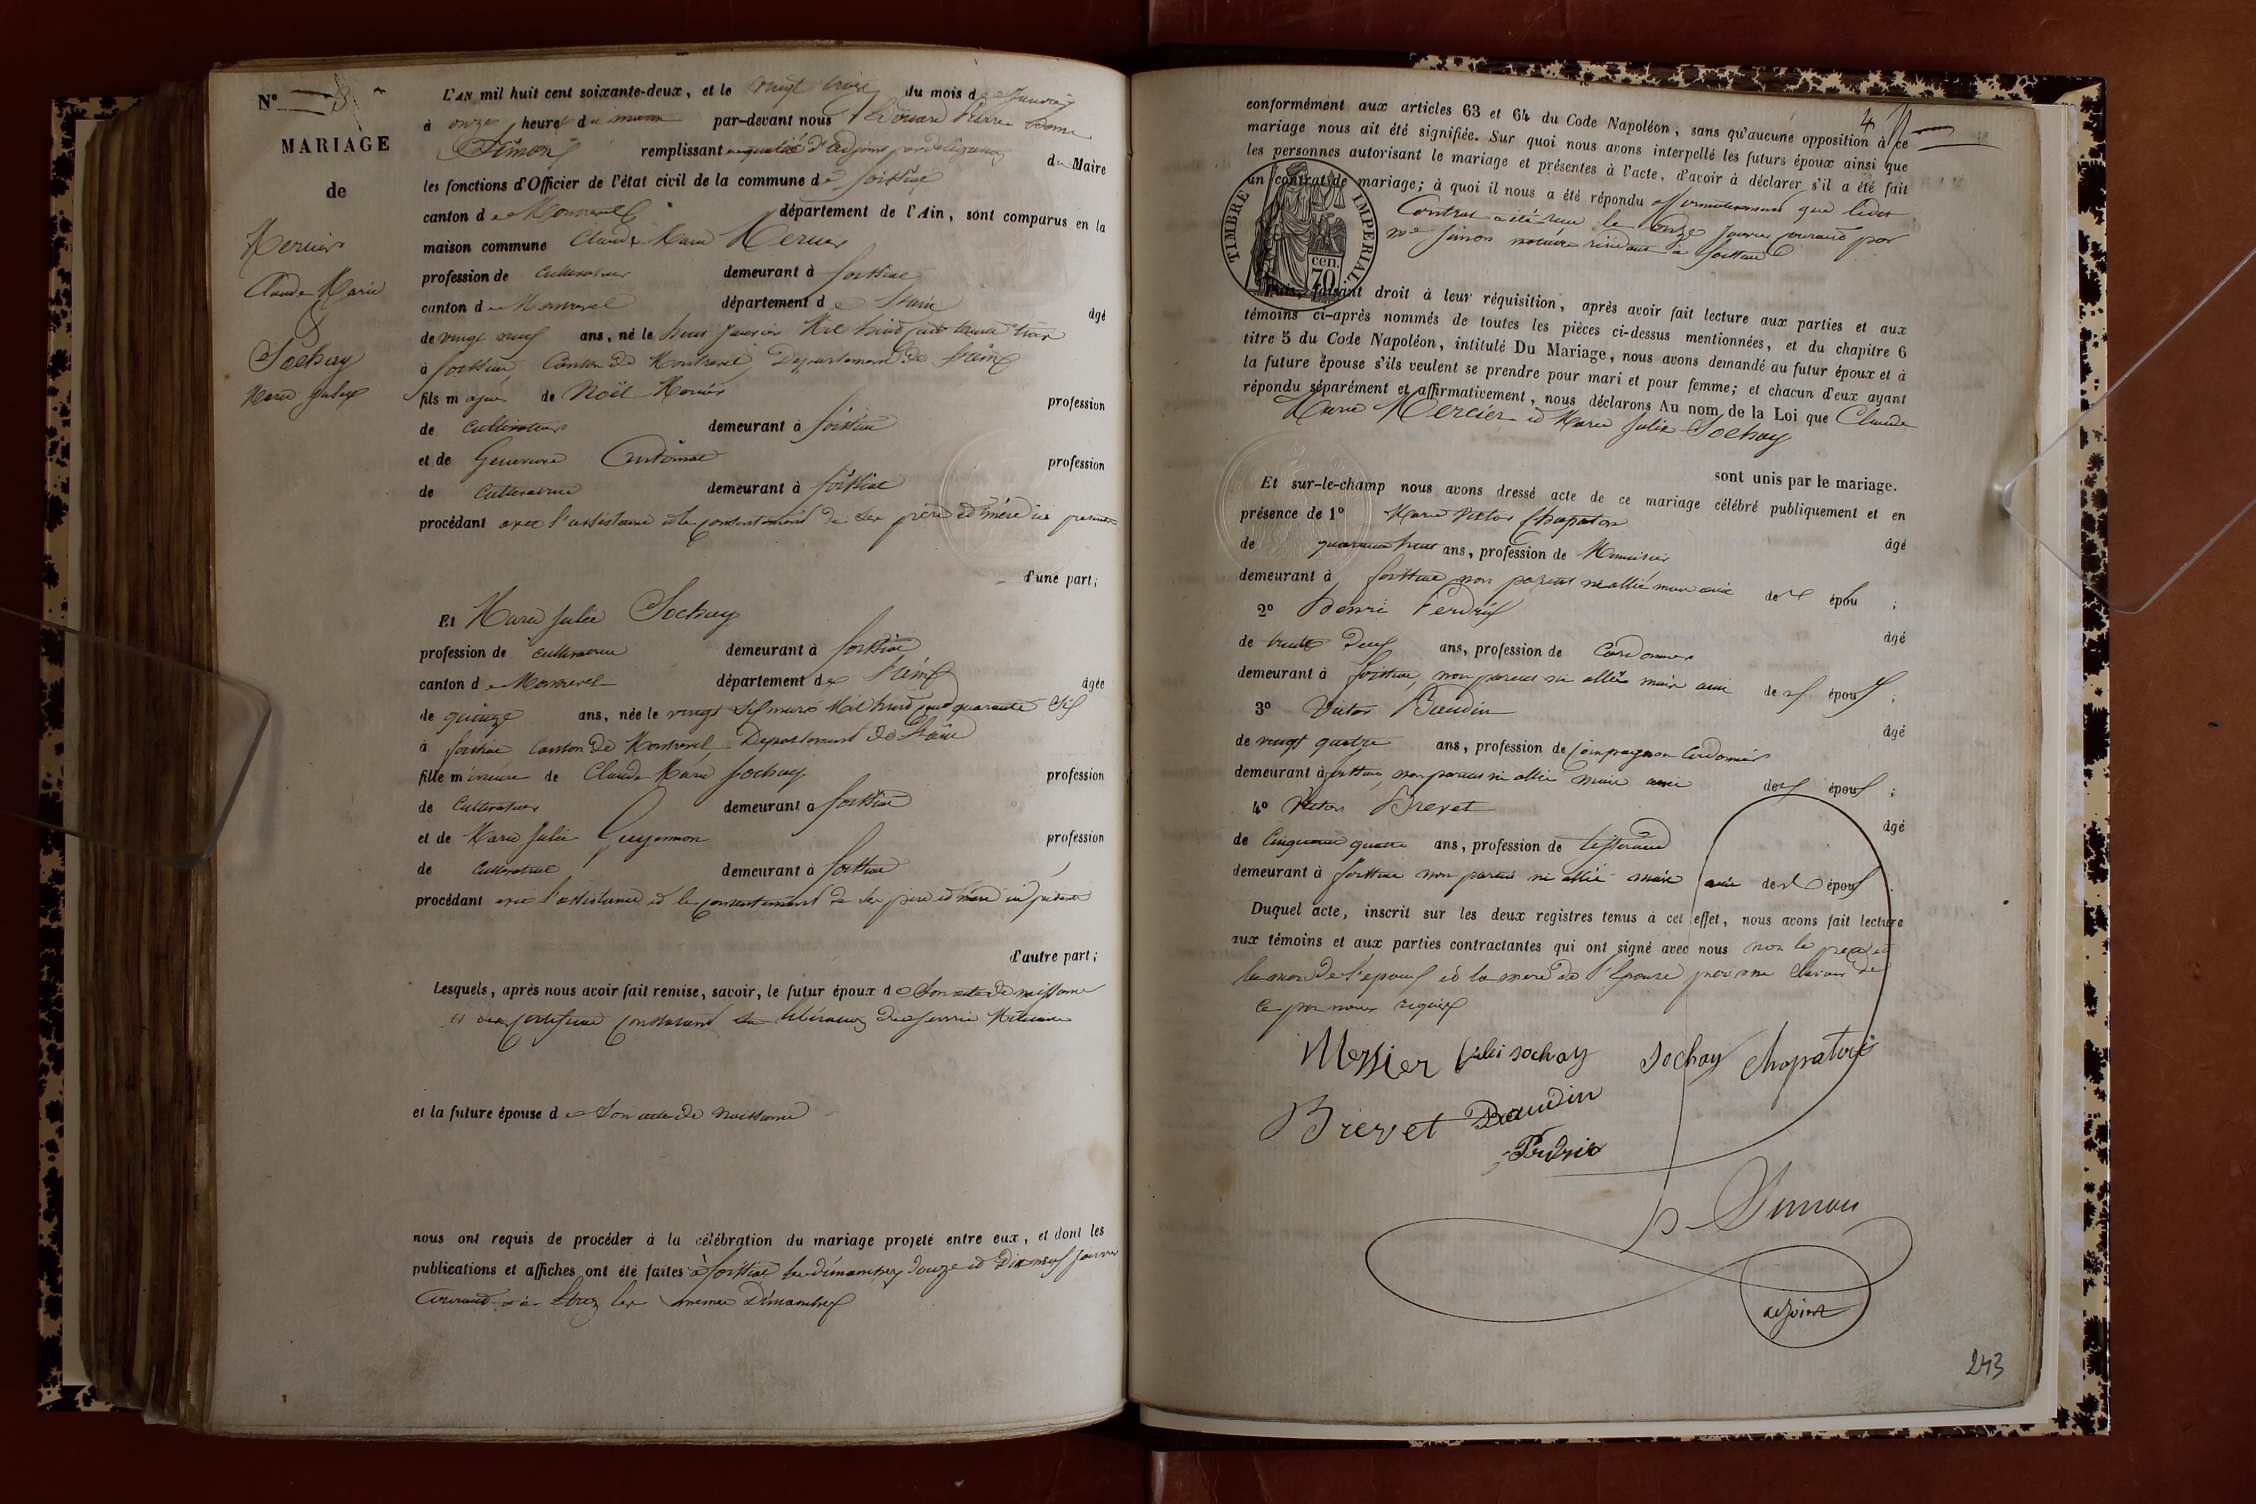 N° 8
MARIAGE
de
Mercier
Claude Marie
&
Sochay
Marie Julie
L'AN mil huit cent soixante-deux, et le vingt trois du mois de Janvier
à onze heures du matin par-devant nous Edouard Pierre
Simon remplissant en qualité d'adjoint par délégation du Maire
les fonctions d'Officier de l'état civil de la commune de foissiat
canton de Montrevel département de l'Ain, sont comparus en la
maison commune Claude Marie Mercier
profession de cultivateur demeurant à foissiat
canton de Montrevel département de l'ain âgé
de vingt neuf ans, né le Janvier Mil huit cent trente trois
à foissiat, Canton de Montrevel, Departement de l'ain
fils majeur de Noël Mercier profession
de cultivateur demeurant à foissiat
et de Genevieve profession
de cultivatrice demeurant à foissiat
procédant avec l'assistance et le consentement de ses père et mère ici présents
d'une part;
Et Marie Julie Sochay
profession de cultivatrice demeurant à foissiat
canton de Montrevel département de l'ain âgée
de quinze ans, née le vingt six mars Mil huit cent quarante six
à foissiat Canton de Montrevel Departement de l'ain
fille mineure de Claude Marie Sochay profession
de Cultivateur demeurant à foissiat
et de Marie Julie Guyennon profession
de cultivatrice demeurant à foissiat
procédant avec l'assistance et le consentement de ses père et mère ici présents
d'autre part;
Lesquels, après nous avoir fait remise, savoir, le futur époux de Son acte de naissance
et du certificat constatant sa libération du service Militaire
et la future épouse de Son acte de naissance
nous ont requis de procéder à la célébration du mariage projeté entre eux, et dont les
publications et affiches ont été faites à foissiat les dimanches douze et dix neuf Janvier
courant et à les mêmes Dimanches
4
conformément aux articles 63 et 64 du Code Napoléon, sans qu'aucune opposition à ce
mariage nous ait été signifiée. Sur quoi nous avons interpellé les futurs époux ainsi que
les personnes autorisant le mariage et présentes à l'acte, d'avoir à déclarer s'il a été fait
un contrat de mariage; à quoi il nous a été répondu affirmativement que ledit
Contrat a été reçu le onze Janvier courant par
Me Simon notaire résidant à foissiat
TIMBRE IMPERIAL
70 cen
Puis, faisant droit à leur réquisition, après avoir fait lecture aux parties et aux
témoins ci-après nommés de toutes les pièces ci-dessus mentionnées, et du chapitre 6
titre 5 du Code Napoléon, intitulé Du Mariage, nous avons demandé au futur époux et à
la future épouse s'ils veulent se prendre pour mari et pour femme; et chacun d'eux ayant
répondu séparément et affirmativement, nous déclarons Au nom de la Loi que Claude
Marie Mercier et Marie Julie Sochay
sont unis par le mariage.
Et sur-le-champ nous avons dressé acte de ce mariage célébré publiquement et en
présence de 1° Marie Victor Chapaton âgé
de quarante huit ans, profession de Menuisier
demeurant à foissiat non parent ni allié mais ami des épou ;
2° Henri Perdrix âgé
de trente deux ans, profession de Cordonnier
demeurant à foissiat, non parent ni allié mais ami des époux ;
3° Victor Baudin âgé
de vingt quatre ans, profession de Compagnon Cordonnier
demeurant à foissiat, non parent ni allié mais ami des époux ;
4° Victor Brevet âgé
de Cinquante quatre ans, profession de tisserand
demeurant à foissiat non parent ni allié mais ami des époux
Duquel acte, inscrit sur les deux registres tenus à cet effet, nous avons fait lecture
aux témoins et aux parties contractantes qui ont signé avec nous non le père et
la mère de l'époux et la mère de l'épouse pour ne savoir de
ce par nous requis
Messier Julie Sochay Sochay Chapaton
Brevet Baudin
Perdrix
P. Simon
adjoint
243